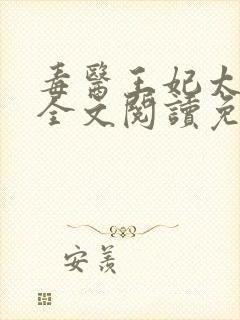 毒醫王妃太
全文閱讀免
安羨